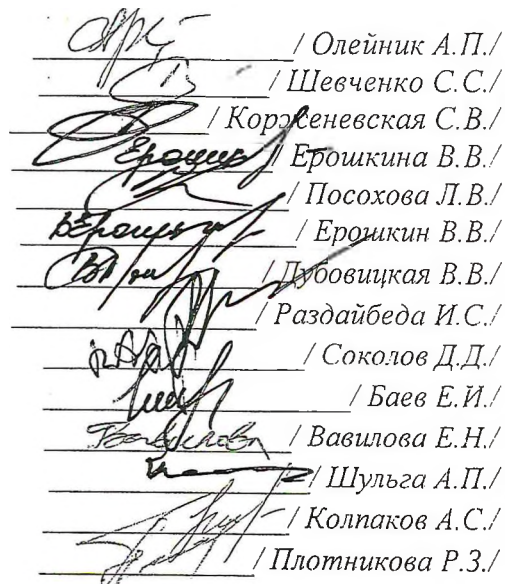 / Олейник А.П./
/ Шевченко С.С./
/ Корженевская С.В./
/ Ерошкина В.В./
/ Посохова Л.В./
/ Ерошкин В.В./
/ Дубовицкая В.В./
/ Раздайбеда И.С./
/ Соколов Д.Д./
/ Баев Е.И./
/ Вавилова Е.Н./
/ Шульга А.П./
/ Колпаков А.С./
/ Плотникова Р.З./